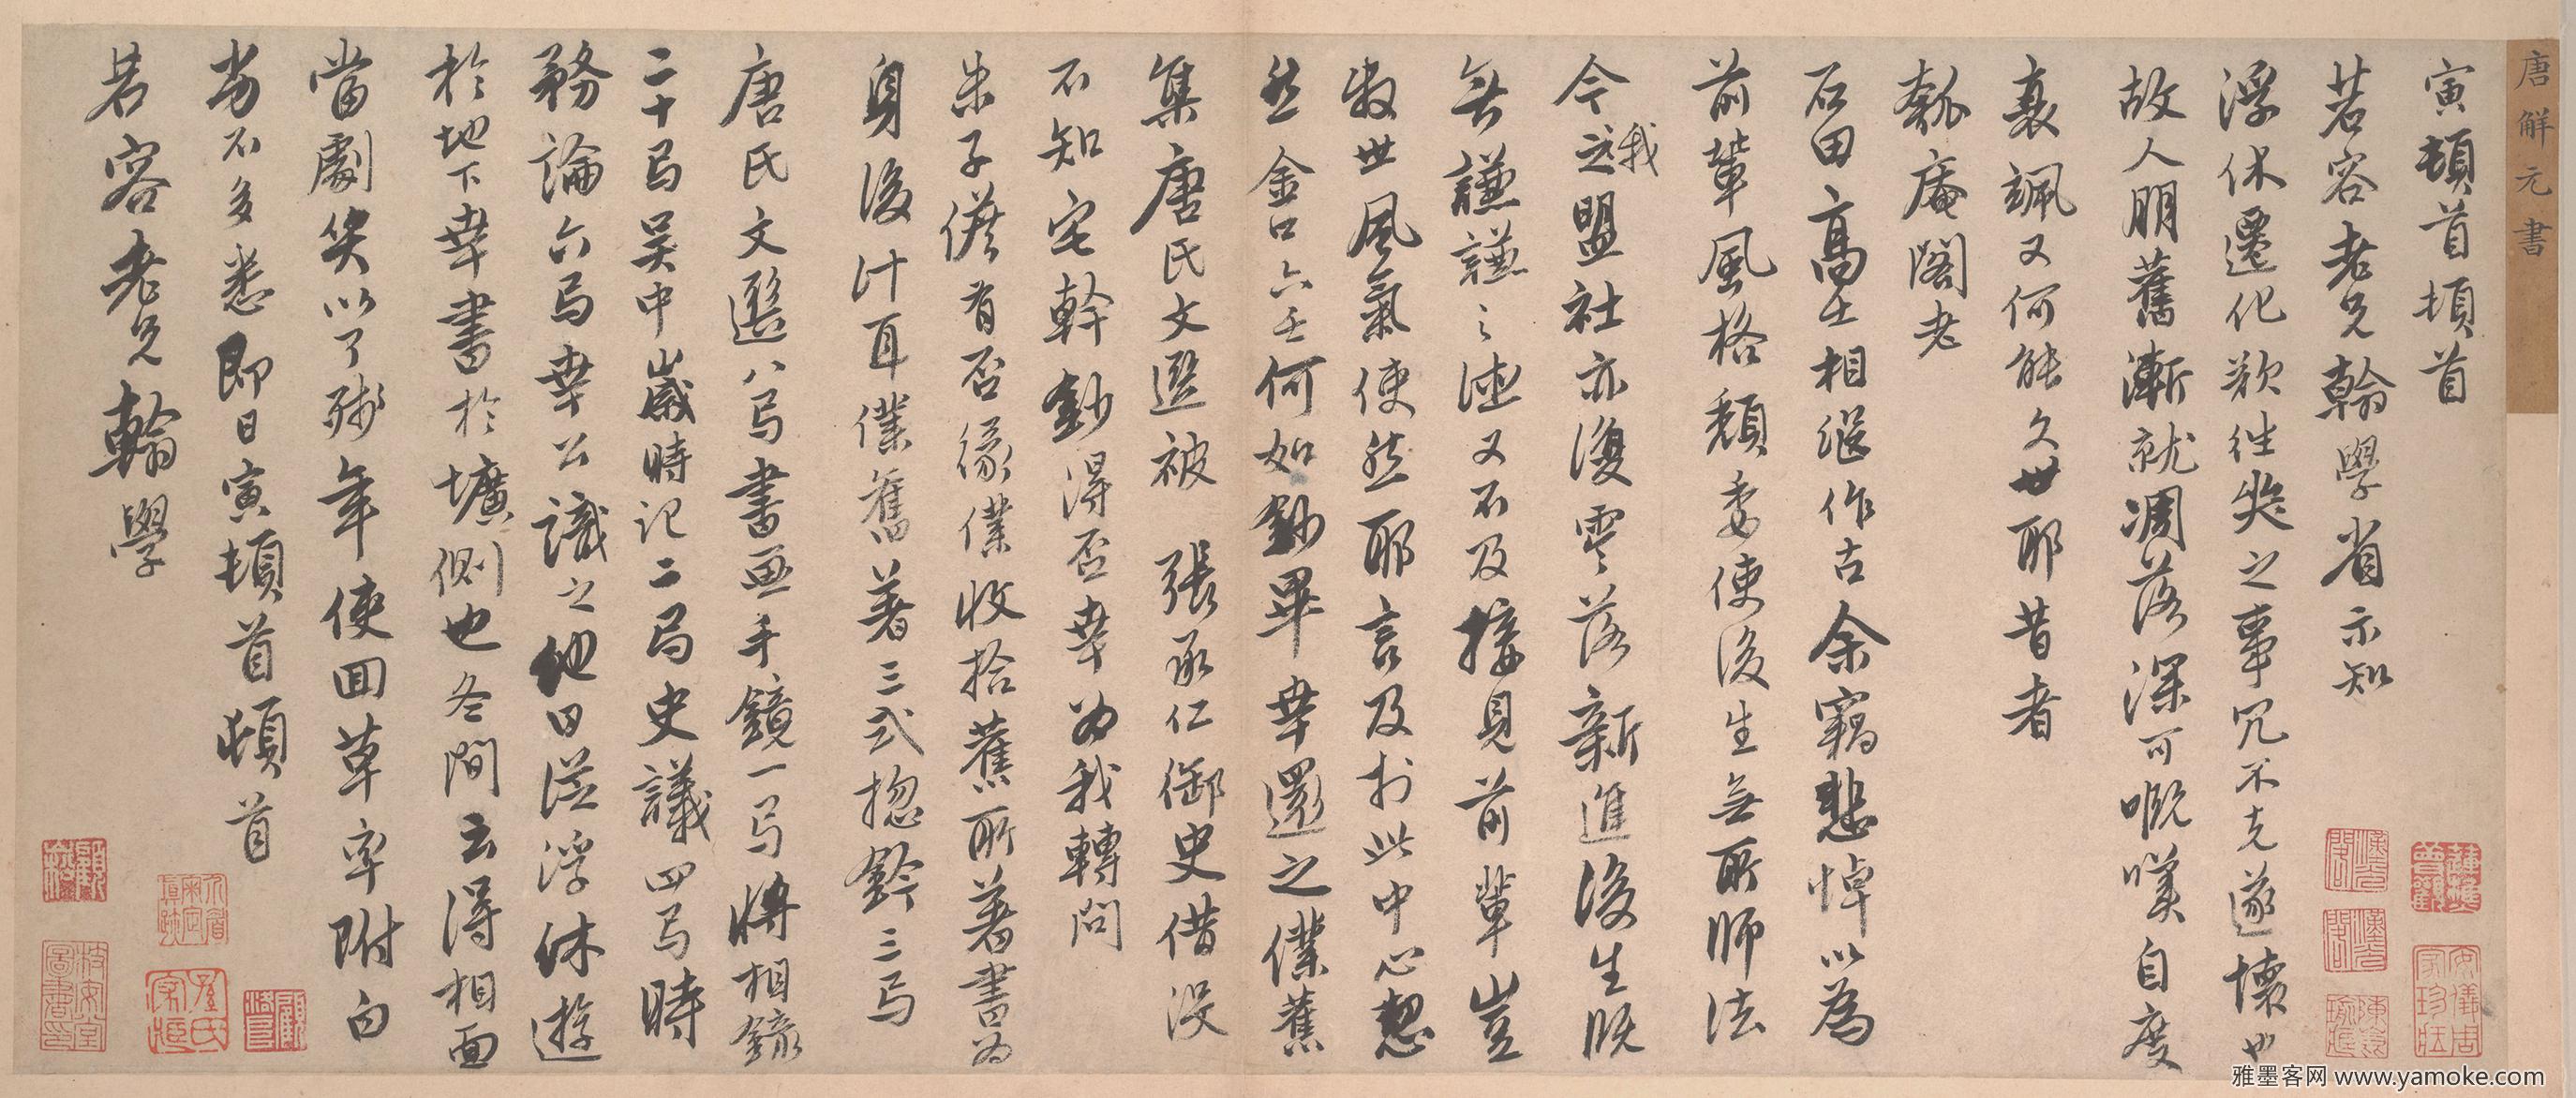 唐解元書
寅頓首頓首
若容老兄翰學省示知
浮休遷化欲往哭之事冗不克遂懷也
故人朋舊漸就凋落深可嘅嘆自度
衰颯又何能久世耶昔者
瓠庵閣老
石田高士相繼作古余竊悲悼以為
前輩風格頹委使後生無所師法
今之我盟社亦復零落新進後生既
無謙謙之德又不及接見前輩豈
衰世風氣使然耶言及於此中心愁
然金口六壬何如鈔畢幸還之僕舊
集唐氏文選被 張承仁御史借沒
不知宅幹鈔得否幸為我轉問
朱子儋有否緣僕收拾舊所著書為
身後計耳僕舊著三式捴鈐三局
唐氏文選八局書畫手鏡一局將相錄
二十局吳中歲時記二局史議四局時
務論六局幸公識之他日從浮休遊
於地下幸書於壙側也冬間云得相面
當劇笑以了殘年使回草率附白
必不多悉即日寅頓首頓首
若容老兄翰學
雅墨客网 www.yamoke.com